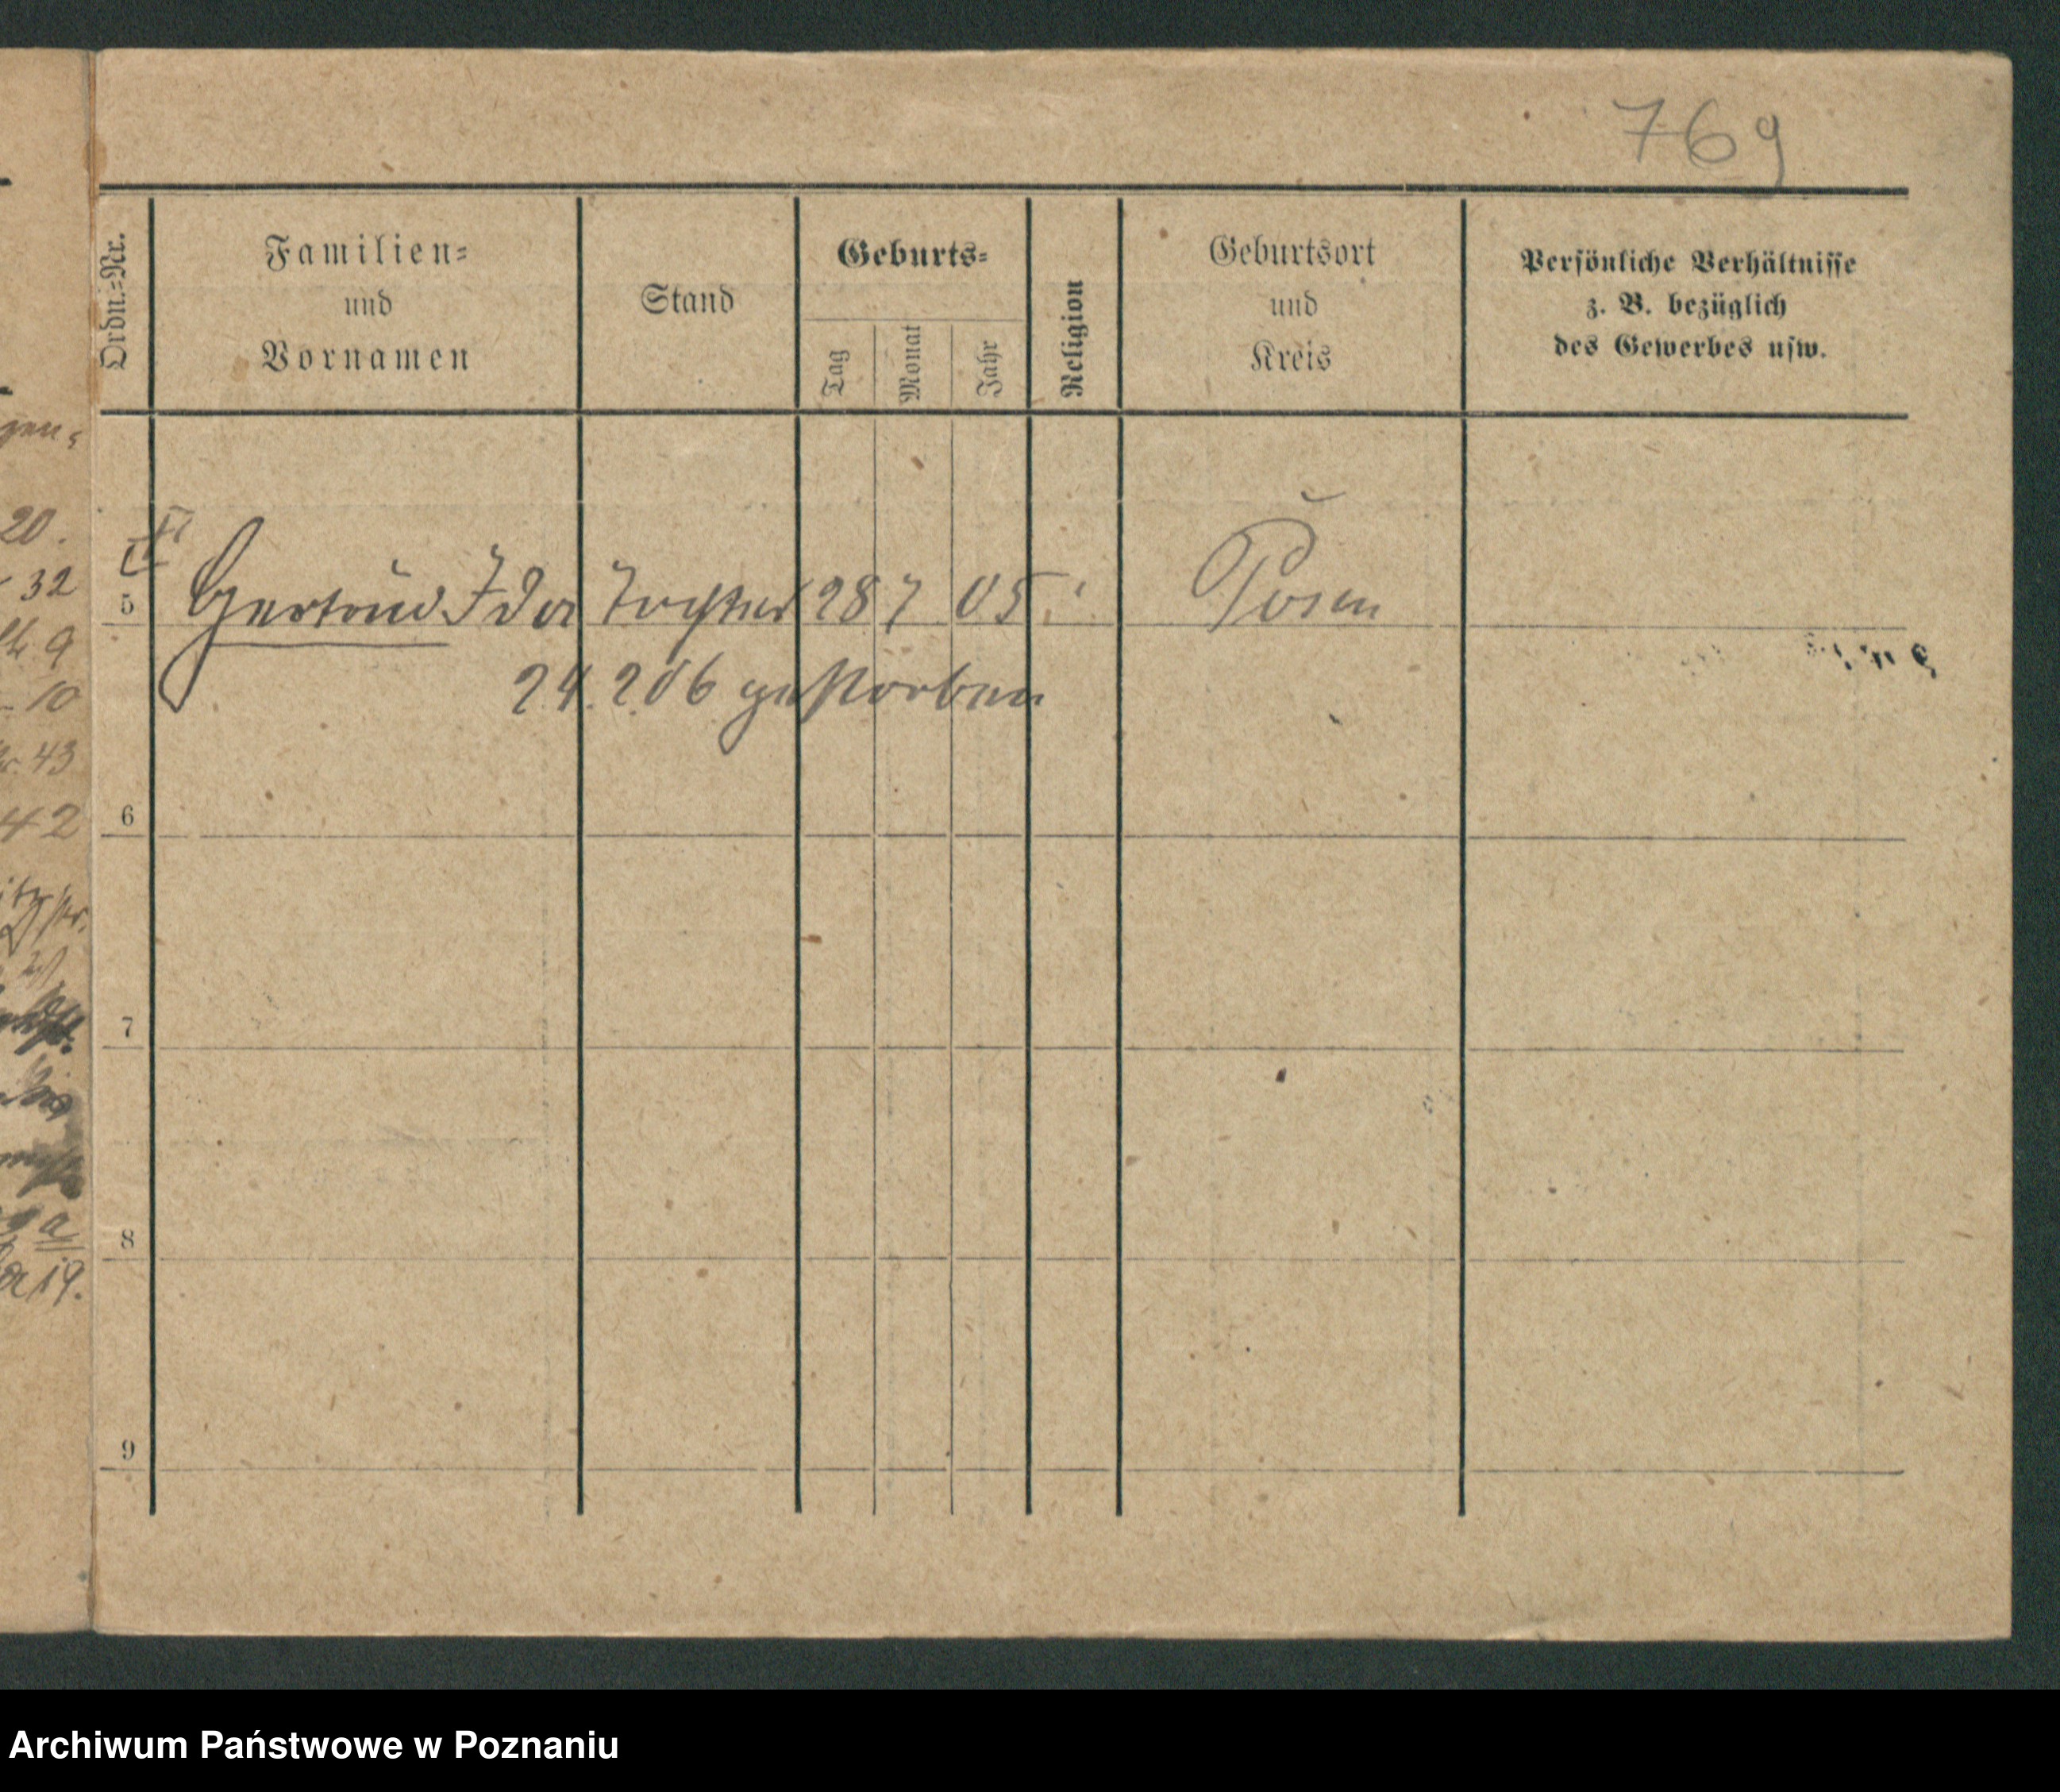 769
Ordn.-Nr.
Familien-
und
Vornamen
Stand
Geburts-
Tag
Monat
Jahr
Religion
Geburtsort
und
Kreis
Persönliche Verhältnisse
z. B. bezüglich
des Gewerbes usw.
gen-
20.
32
5 Gertrud Ida Tochter 28 7 05 Posen
9
24. 2 06 gestorben
10
43
42
6
7
8
19.
9
Archiwum Państwowe w Poznaniu